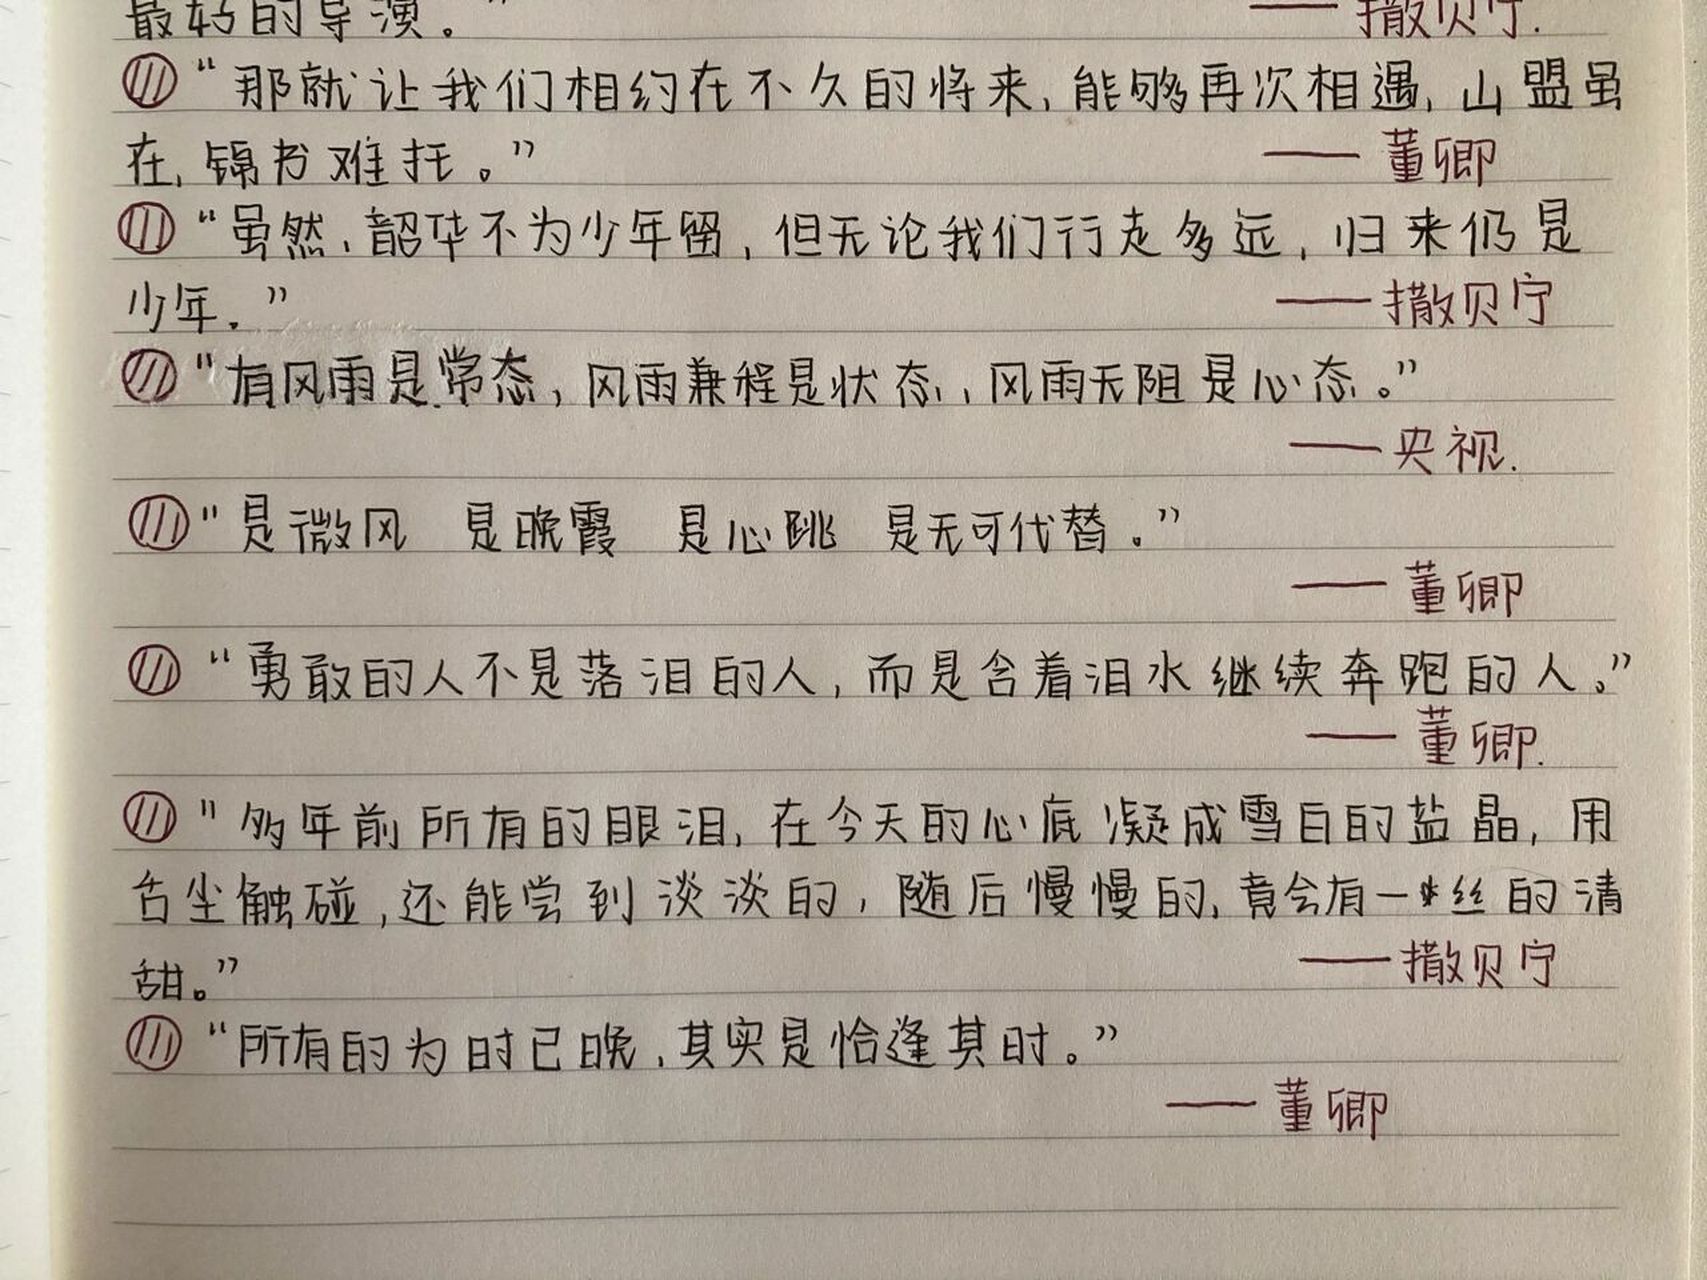 最好的导演。” —— 撒贝宁.
“那就让我们相约在不久的将来,能够再次相遇,山盟虽
在,锦书难托。” —— 董卿
“虽然,韶华不为少年留,但无论我们行走多远,归来仍是
少年。” —— 撒贝宁
“有风雨是常态,风雨兼程是状态,风雨无阻是心态。”
—— 央视.
“是微风 是晚霞 是心跳 是无可代替。”
—— 董卿
“勇敢的人不是落泪的人,而是含着泪水继续奔跑的人。”
—— 董卿.
“多年前所有的眼泪,在今天的心底凝成雪白的盐晶,用
舌尖触碰,还能尝到淡淡的,随后慢慢的,竟会有一丝的清
甜。” —— 撒贝宁
“所有的为时已晚,其实是恰逢其时。”
—— 董卿